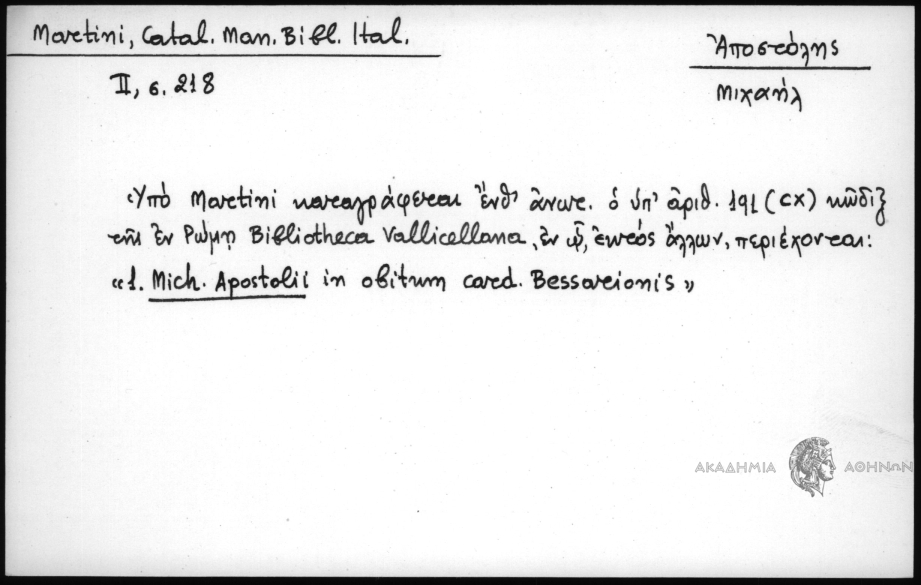 Martini, Catal. Man. Bibl. Ital.
II, σ. 218
Ἀποστόλης
Μιχαήλ
Ὑπὸ Martini καταγράφεται ἔνθ' ἄνωτ. ὁ ὑπ' ἀριθ. 191 (CX) κῶδιξ
τῆς ἐν Ρώμῃ Bibliotheca Vallicellana, ἐν ᾧ, ἐκτὸς ἄλλων, περιέχονται:
«1. Mich. Apostolii in obitum card. Bessarionis»
ΑΚΑΔΗΜΙΑ ΑΘΗΝΩΝ